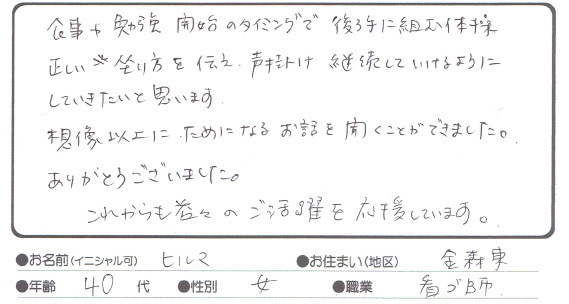 食事や勉強 開始のタイミングで 後ろ手に組む体操
正しい坐り方を伝え、声掛け 継続していけるように
していきたいと思います。
想像以上に、ためになるお話を聞くことができました。
ありがとうございました。
これからも益々のご活躍を応援しています。
●お名前(イニシャル可) ヒルマ ●お住まい(地区) 金森東
●年齢 40 代 ●性別 女 ●職業 看ゴ師